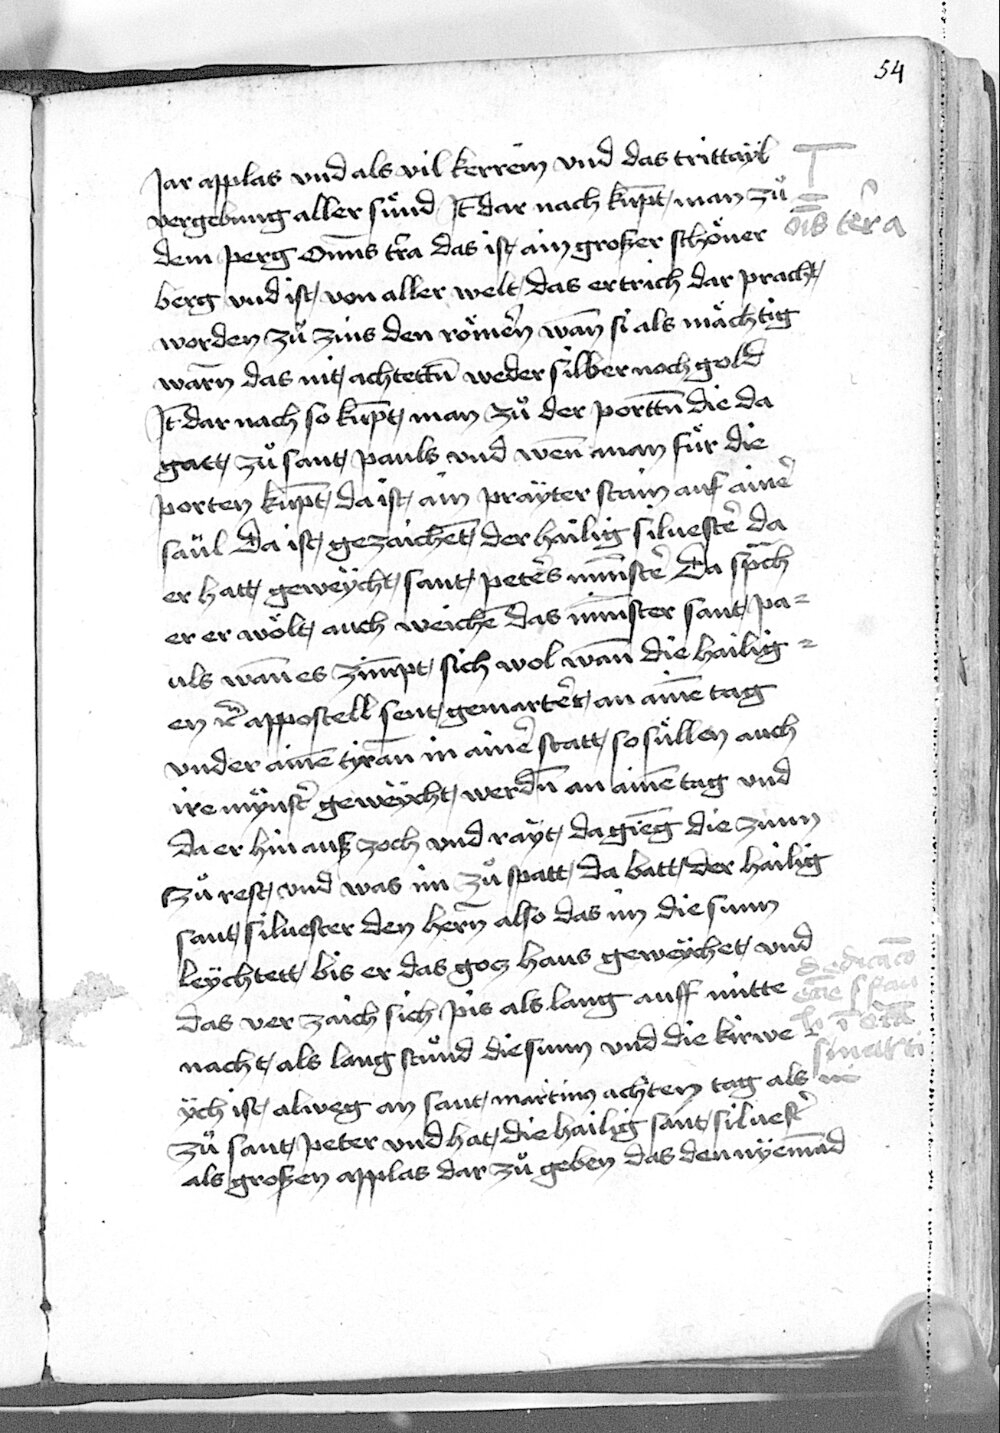 54
Jar applas vnd als vil kerrem vnd das trittayl
vergebung aller sünd Jt̄ dar nach kūpt man zů
dem perg Om̄s t̄ra das ist ain großer schöner
berg vnd ist von aller welt das ertrich dar pracht
worden zů zins den römern̄ wan̄ si als mächtig
warn̄ das nit achtettn̄ weder silber noch gold
Jt̄ dar nach so kūpt man zů der porttn̄ die da
gatt zů sant pauls vnd wen̄ man für die
porten kūpt da ist ain präyter stain auf ainer̄
saül Da ist gezaichet̄ der hailig siluester̄ da
er hatt geweÿcht sant peters̄ mūnster̄ Da sp̄ch
er er wölt auch weichē das münster sant pa-
uls wan̄ es zim̄pt sich wol wan̄ die hailig-
en ij appostell sent gemarter̄t an aim̄e tag
vnder aim̄e tyran̄ in ainer̄ statt so süllen auch
ire mÿnst̄er geweÿcht werdn̄ an aim̄e tag vnd
da er hin auß zoch vnd rayt da gienḡ die sunn
zů rest vnd was im zů spatt da batt der hailig
sant siluester den hern̄ also das im die sunn
leÿchtett bis er das gocz haus geweÿchet vnd
das ver zaich sich pis als lang auff mitte
nacht als lang stůnd die sunn vnd die kirwe
ÿch ist alweg an sant martins achten tag als
zů sant peter vnd hat die hailig sant siluest̄er
als großen applas dar zů geben das den nÿemād
om̄s ter̄ra
dedicac̄o
eccl̄e s pau
s marti